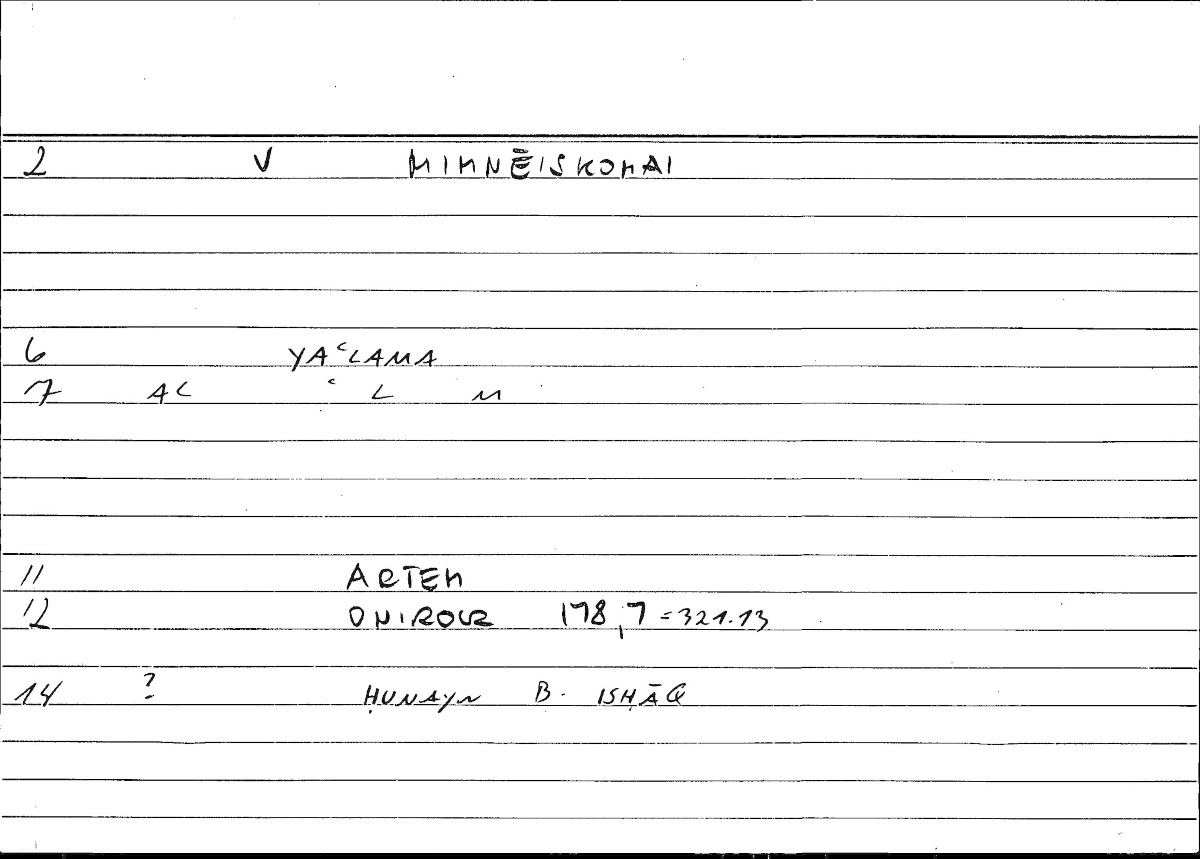 2 V MIMNĒISKOMAI
6 YAʿLAMA
7 AL ʿ L M
11 ARTEM
12 ONIROCR 178,7 = 321.13
14 ? ḤUNAYN B. ISḤĀQ